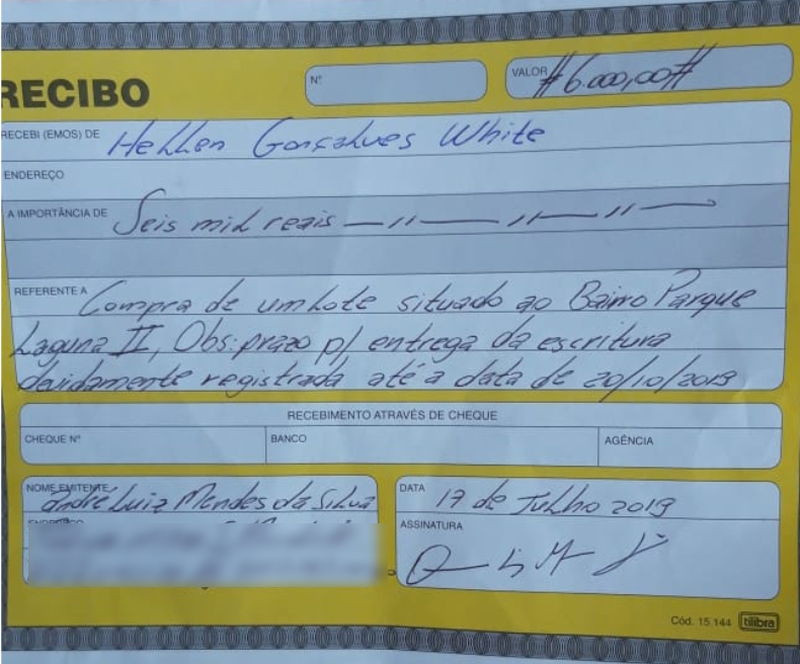 RECIBO
Nº
VALOR #6.000,00#
RECEBI (EMOS) DE Hellen Gonçalves White
ENDEREÇO
A IMPORTÂNCIA DE Seis mil reais
REFERENTE A Compra de um lote situado ao Bairro Parque
Laguna II, Obs: prazo p/ entrega da escritura
devidamente registrada até a data de 20/10/2019
RECEBIMENTO ATRAVÉS DE CHEQUE
CHEQUE Nº BANCO AGÊNCIA
NOME EMITENTE André Luiz Mendes da Silva
DATA 17 de Julho 2019
ASSINATURA
Cód. 15.144 tilibra